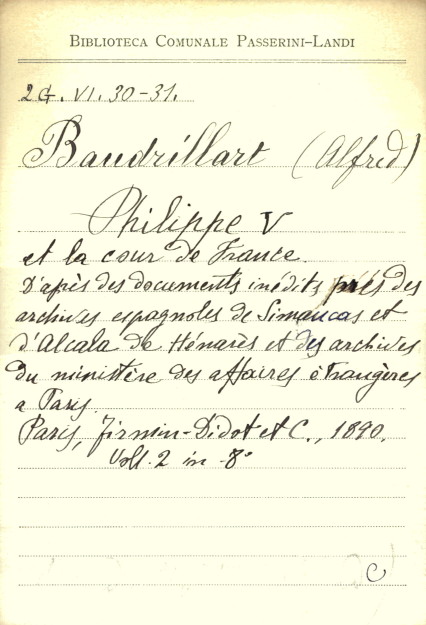 BIBLIOTECA COMUNALE PASSERINI-LANDI
2G. VI. 30-31.
Baudrillart (Alfred)
Philippe V
et la cour de France.
D'après des documents inédits près des
archives espagnoles de Simancas et
d'Alcala de Hénarès et des archives
du ministère des affaires étrangères
a Paris.
Paris, Firmin-Didot et C., 1890.
Voll. 2 in-8°
C